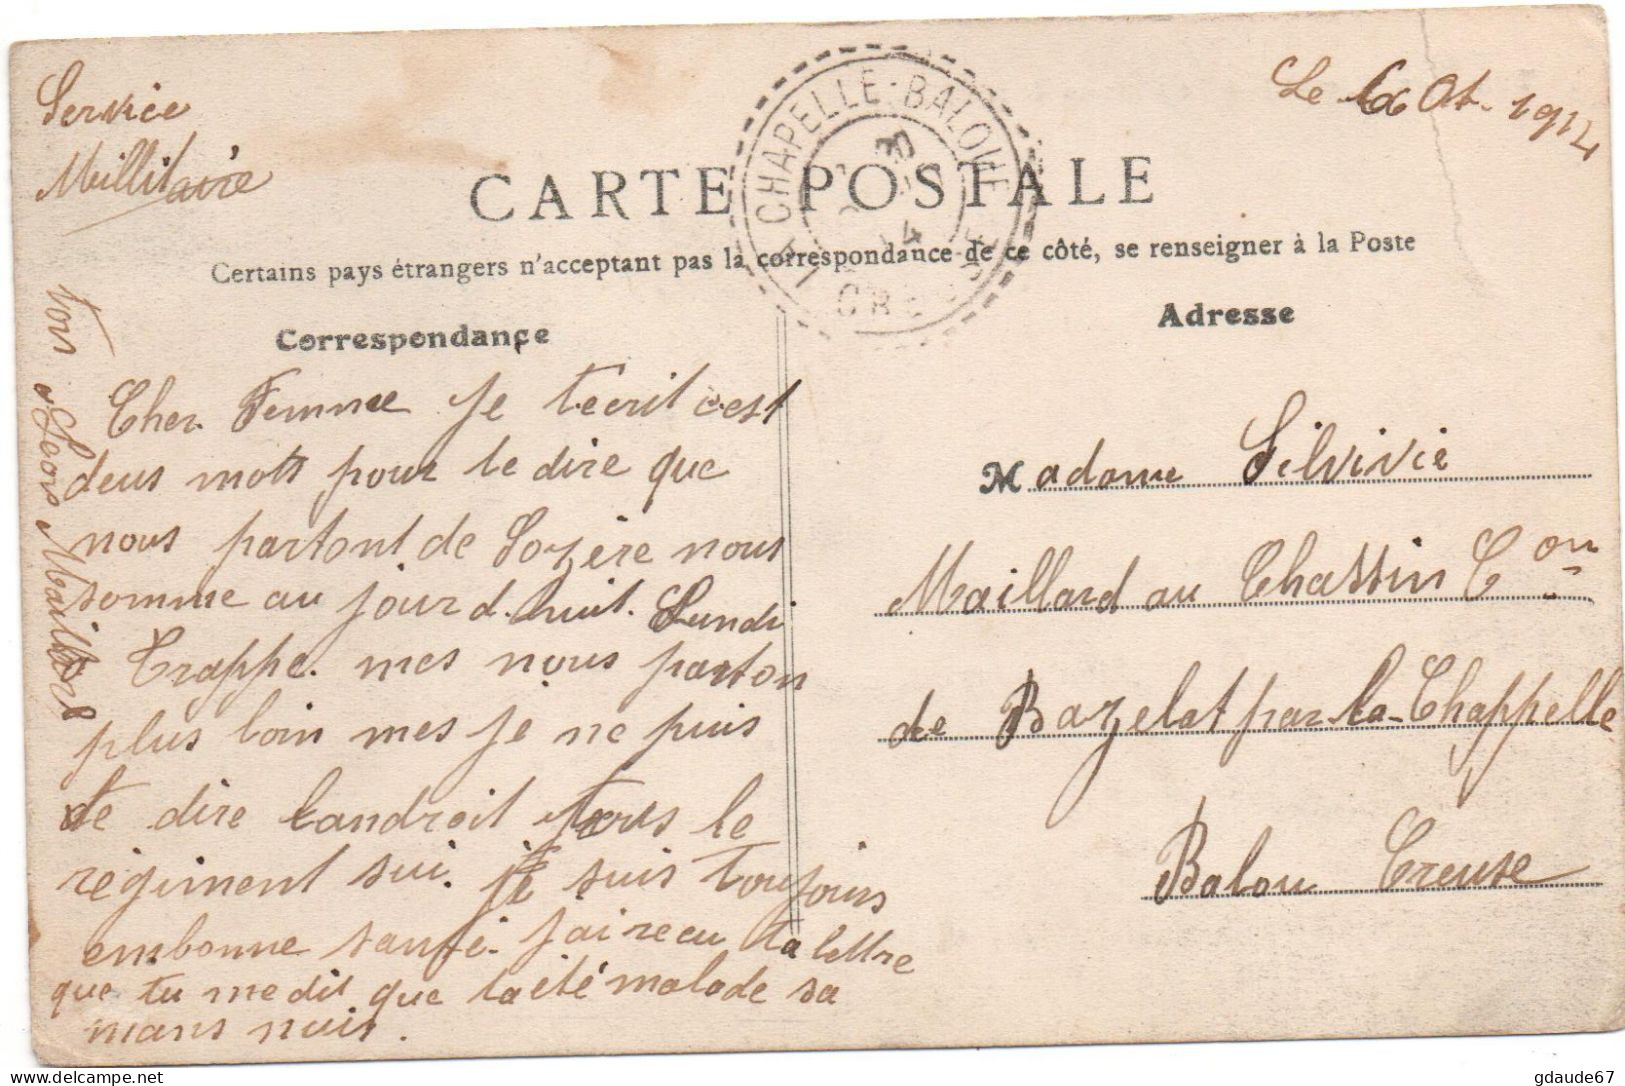 Service
Millitaire
Le Ot. 1914
LA CHAPELLE-BALOUE
CARTE POSTALE
Certains pays étrangers n'acceptant pas la correspondance de ce côté, se renseigner à la Poste
Correspondance
Adresse
Cher Femme je tecrit c'est
deus mots pour te dire que
nous partont de Lozère nous
somme au jour d.huit. Lundi
Trappe. mes nous parton
plus loin mes je ne puis
te dire landroit tous le
régiment sui. je suis toujours
embonne santé. jai recu ta lettre
que tu me dit que taité malade sa
mans nuis.
ton Leon Maillard
Madame Silvivie
Maillard au Chassin Con
de Bazelat par la Chappelle
Balou Creuse
delcampe.net
gdaude67